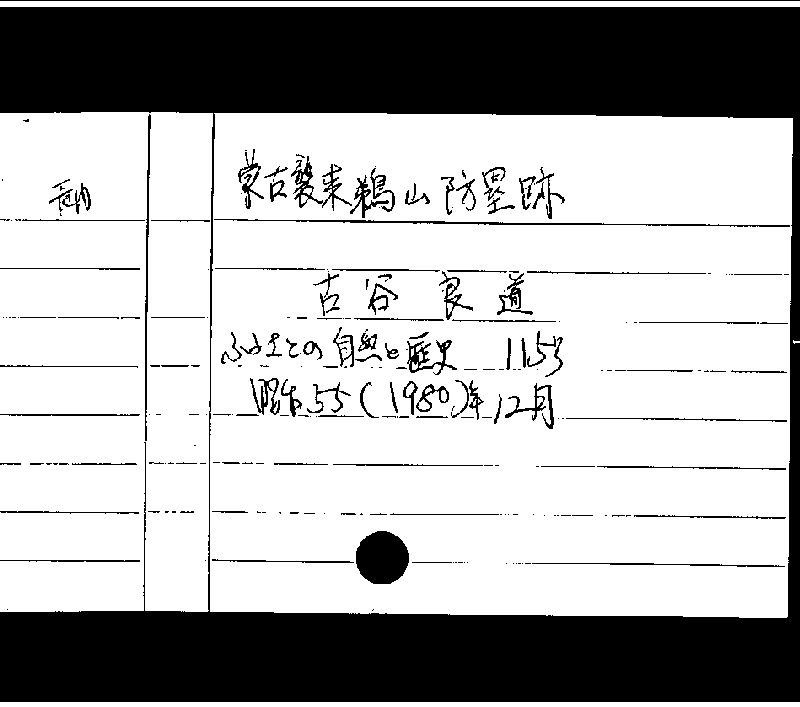 蒙古襲来鵜山防塁跡
古谷良道
ふるさとの自然と歴史 115号
昭和55(1980)年12月